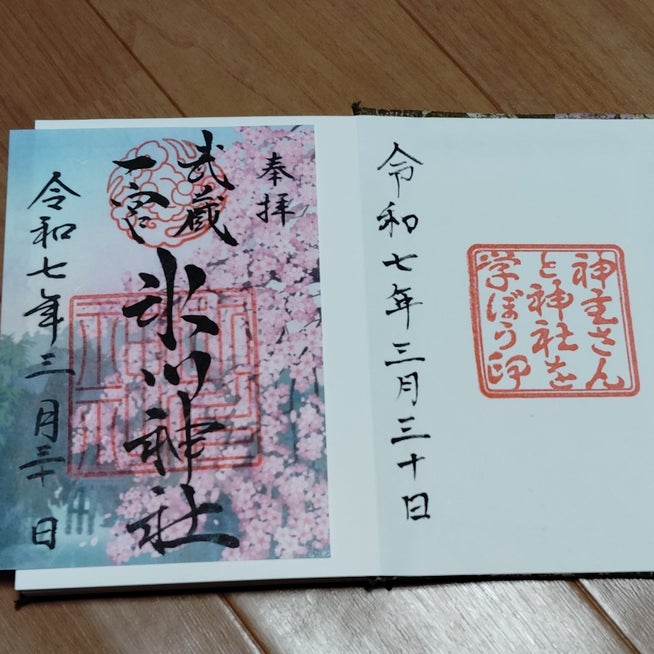 奉拝
武蔵
一宮
氷川神社
令和七年三月三十日
神主さん
と神社を
学ぼう印
令和七年三月三十日